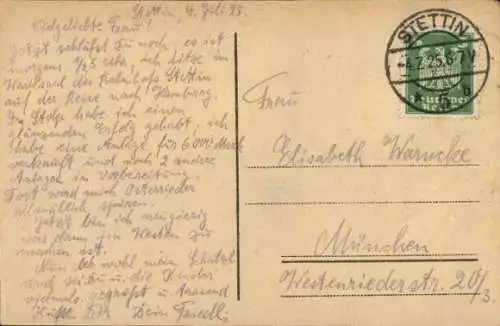 Stettin, 4. Juli 25.
Vielgeliebte Frau!
Jetzt schläfst Du noch, es ist
morgens 1/2 5 Uhr, ich sitze im
Wartesaal des Bahnhofs Stettin
auf der Reise nach Hamburg.
In Stolp habe ich einen
glänzenden Erfolg gehabt, ich
habe eine Anlage für 6000 Mark
verkauft und noch 2 andere
Anlagen in Vorbereitung.
wird mich Osterrieder
allmählich spüren.
Jetzt bin ich neugierig
was dann im Westen zu
machen ist.
Nun leb wohl mein Schatzl
und sei u. die Kinder
vielmals gegrüßt u. tausend
Küsse Dir Dein Friedl
STETTIN
4.7.25.6-7V
b
Deutsches
Reich
Frau
Elisabeth Warncke
München
Westenriederstr. 20/3.